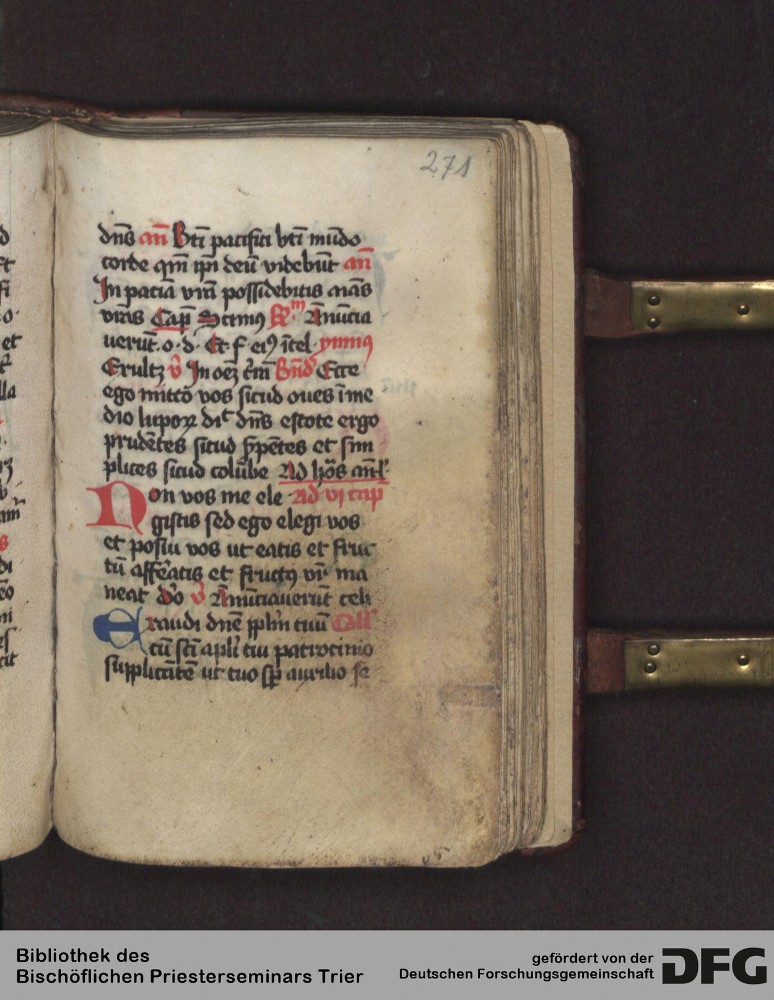 271
dn̄s an̄ Bt̄i pacifici bt̄i mūdo
corde qm̄ ip̄i deū videbūt an̄
In paciā vrā possidebitis aīas
vr̄as Cap̄ Scimus Rm Anūcia
uerūt · o · d · Et f eiꝰ ītel · ymnus
Exultꝫ v̄ In oēꝫ t̄rā Bn̄d Ecce
ego mitto vos sicud oues ī me
dio lupoꝝ dic̄ dn̄s estote ergo
prudētes sicud ẜpētes et sim
plices sicud colūbe Ad ho᷒s an̄
Non vos me ele Ad vi cap̄
gistis sed ego elegi vos
et posui vos ut eatis et fruc
tū affēatis et fructꝰ vr̄ ma
neat v̄ Anūciauerūt celi
Exaudi dn̄e ppl̄m tuū Coll
cū sc̄i apl̄i tui patrocinio
supplicātē ut tuo sp̄ auxilio se
Bibliothek des
Bischöflichen Priesterseminars Trier
gefördert von der
Deutschen Forschungsgemeinschaft DFG